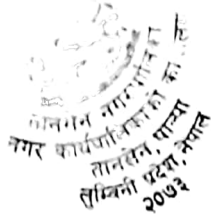 तानसेन नगरपालिका
नगर कार्यपालिकाको का
तानसेन, पाल्पा
लुम्बिनी प्रदेश, नेपाल
२०७३